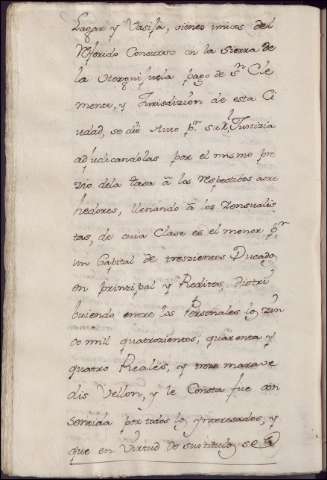 Lagar y Vasija, vienes unicos del
Referido Concurso en la Sierra de
la pago de Sn. Cle
mente, y Jurisdizion de esta Ci
udad, se dio Auto pr. s.rl Justizia
adjudicandolas por el mismo pre
zio dela tasa â las Respectibos acre
hedores, llenando â los Zensualis
tas, de cuia Clase es el menor pr.
un Capital de treszientos Ducados
en principal y Reditos, distri
buiendo entre los Personales los zin
co mil quatrozientos, quarenta y
quatro Reales, y marave
dis Vellon, y le Consta fue con
sentida por todos los ynteresados, y
que en Virtud de sus titulos se